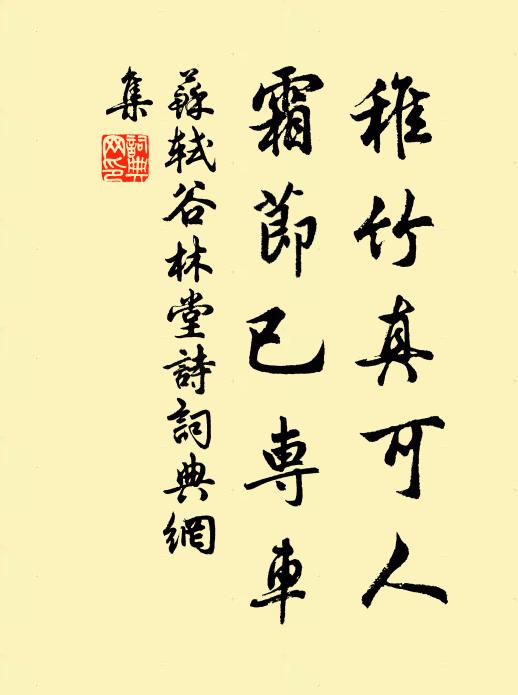 稚竹真可人
霜節已專車
蘇軾谷林堂詩詞典網
集
詞典网印